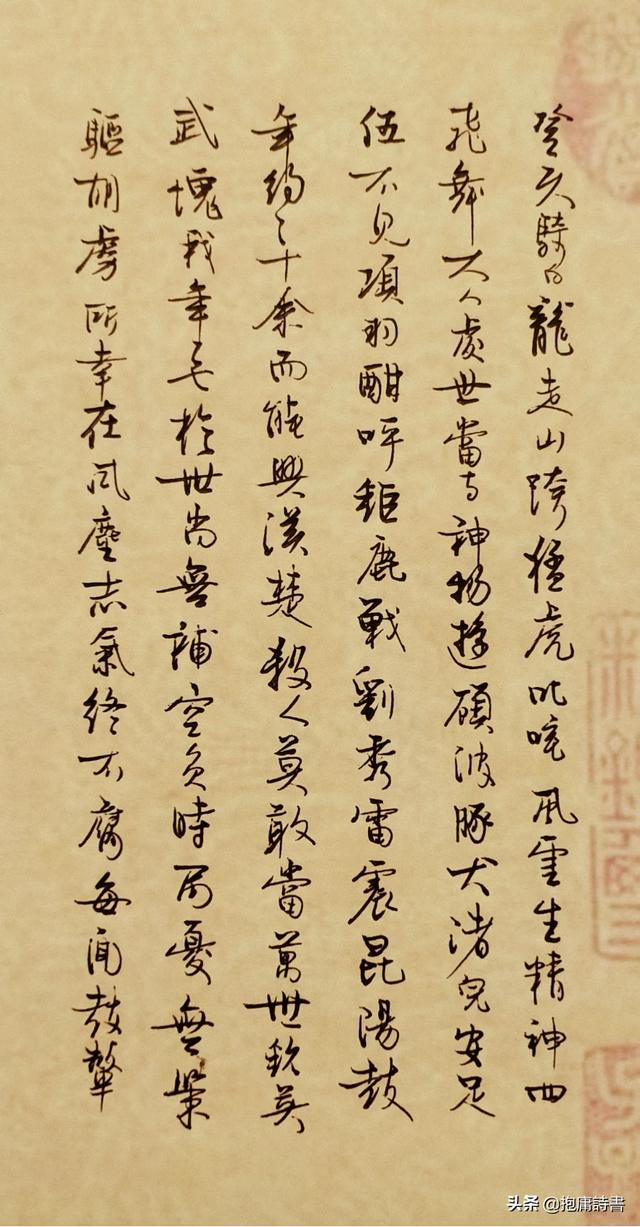 登天騎白龍走山跨猛虎叱咤風雲生精神四
飛舞大人處世當与神物遊顧彼豚犬諸兒安足
伍不見項羽酣呼鉅鹿戰劉秀雷震昆陽鼓
年約二十余而能興漢楚殺人莫敢當萬世欽英
武愧我年二七於世尚無補空負時局憂無策
驅胡虜所幸在風塵志氣終不腐每聞鼓鼙
头条 @抱庸詩書